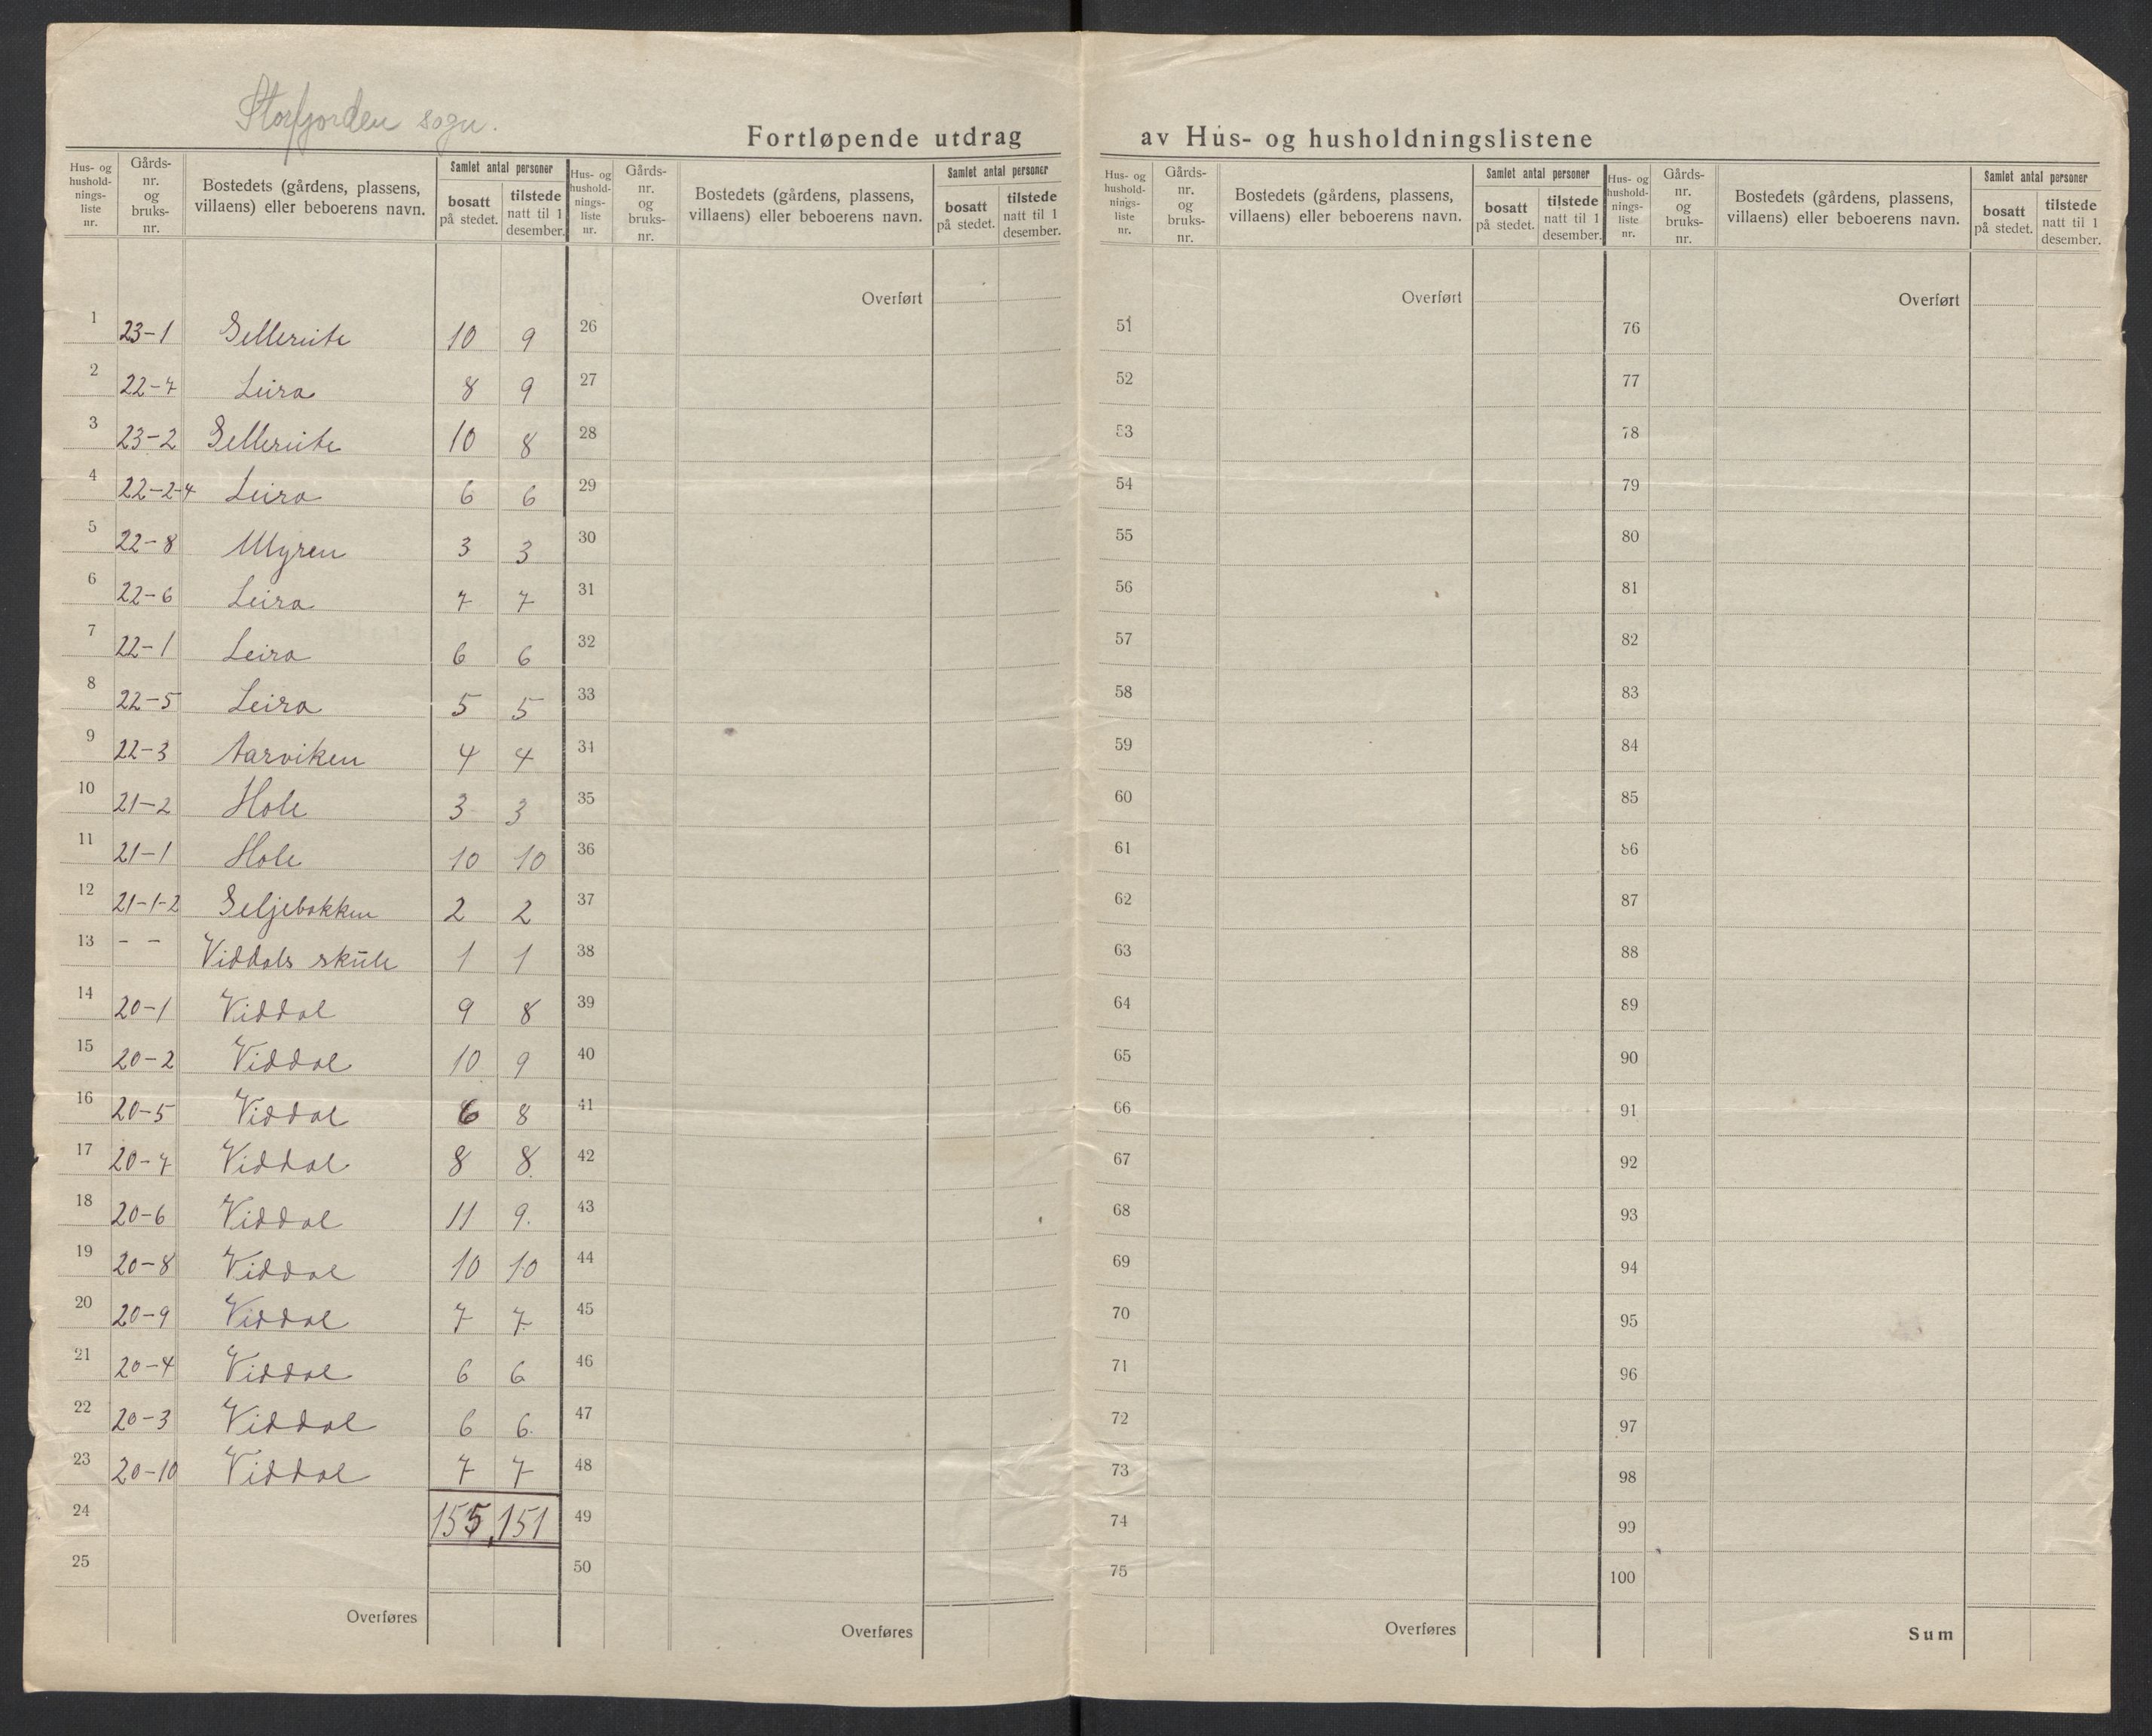 Storfjorden sogn.
Fortløpende utdrag av Hus- og husholdningslistene
Hus- og husholdnings-liste nr. | Gårds-nr. og bruks-nr. | Bostedets (gårdens, plassens, villaens) eller beboerens navn. | Samlet antal personer | bosatt på stedet. | tilstede natt til 1 desember.
Hus- og husholdnings-liste nr. | Gårds-nr. og bruks-nr. | Bostedets (gårdens, plassens, villaens) eller beboerens navn. | Samlet antal personer | bosatt på stedet. | tilstede natt til 1 desember.
Hus- og husholdnings-liste nr. | Gårds-nr. og bruks-nr. | Bostedets (gårdens, plassens, villaens) eller beboerens navn. | Samlet antal personer | bosatt på stedet. | tilstede natt til 1 desember.
Hus- og husholdnings-liste nr. | Gårds-nr. og bruks-nr. | Bostedets (gårdens, plassens, villaens) eller beboerens navn. | Samlet antal personer | bosatt på stedet. | tilstede natt til 1 desember.
1 23-1 10 9
2 22-7 Leira 8 9
3 23-2 10 8
4 22-2-4 Leira 6 6
5 22-8 Myren 3 3
6 22-6 Leira 7 7
7 22-1 Leira 6 6
8 22-5 Leira 5 5
9 22-3 Aarviken 4 4
10 21-2 Hole 3 3
11 21-1 Hole 10 10
12 21-1-2 Seljebakken 2 2
13 - - Viddals skule 1 1
14 20-1 Viddal 9 8
15 20-2 Viddal 10 9
16 20-5 Viddal 6 8
17 20-7 Viddal 8 8.
18 20-6 Viddal 11 9.
19 20-8 Viddal 10 10
20 20-9 Viddal 7 7.
21 20-4 Viddal 6 6
22 20-3 Viddal 6 6.
23 20-10 Viddal 7 7
24 155 151
25
Overføres
Overført
26
27
28
29
30
31
32
33
34
35
36
37
38
39
40
41
42
43
44
45
46
47
48
49
50
Overføres
Overført
51
52
53
54
55
56
57
58
59
60
61
62
63
64
65
66
67
68
69
70
71
72
73
74
75
Overføres
Overført
76
77
78
79
80
81
82
83
84
85
86
87
88
89
90
91
92
93
94
95
96
97
98
99
100
Sum